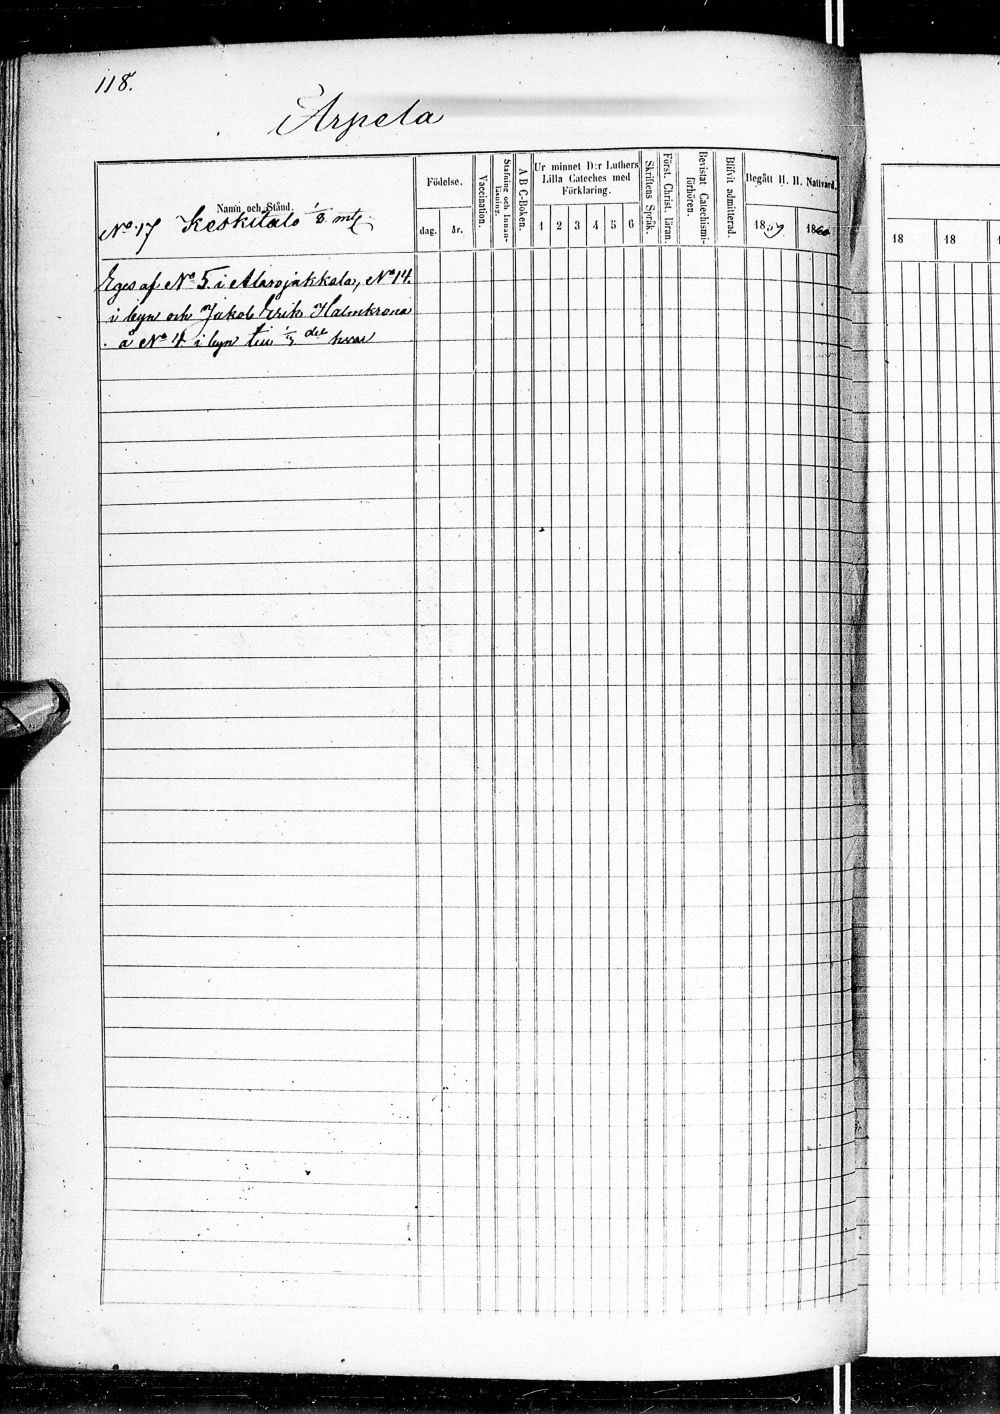 118.
Arpela
Namn och Stånd.
No. 17 Keskitalo 1/8 mtl.
Födelse.
dag. år.
Vaccination.
Stafning och Innanläsning.
A B C-Boken.
Ur minnet D:r Luthers
Lilla Cateches med
Förklaring.
1 2 3 4 5 6
Skriftens Språk.
Först. Christ. läran.
Bevistat Catechismiförhören.
Blifvit admitterad.
Begått H. H. Nattvard.
1859 1860
18 18
Eges af No 5. i Alarojakkala, No 14.
i byn och Jakob Erik Halmkrona
å No 4 i byn till 1/3 del hvar